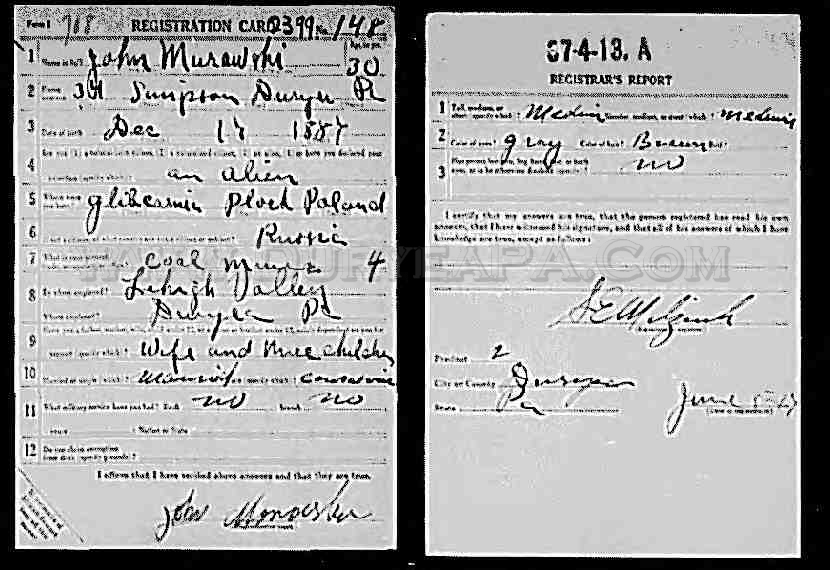 Form 1 708 REGISTRATION CARD 2399 No. 148
1 Name in full John Murawski Age, in yrs. 30
2 Home 311 Simpson Duryea Pa
3 Date of birth Dec 17 1887
4 Are you (1) a natural-born citizen, (2) a naturalized citizen, (3) an alien, (4) or have you declared your
intention (specify which)? an alien
5 Where were you born? Plock Poland
6 Russia
7 What is your present Coal Miner 4
8 By whom employed? Lehigh Valley
Where employed? Duryea Pa
9 Have you a father, mother, wife, child under 12, or a sister or brother under 12, solely dependent on you for
support (specify which)? Wife and three children
10 Married or single (which)? Married Race (specify which)? Caucasian
11 What military service have you had? Rank no branch no
years Nation or State
12 Do you claim exemption
from draft (specify grounds)?
I affirm that I have verified above answers and that they are true.
John
37-4-13. A
REGISTRAR'S REPORT
1 Tall, medium, or short (specify which)? Medium Slender, medium, or stout (which)? Medium
2 Color of eyes? Gray Color of hair? Brown Bald?
3 Has person lost arm, leg, hand, foot, or both
eyes, or is he otherwise disabled (specify)? no
I certify that my answers are true, that the person registered has read his own
answers, that I have witnessed his signature, and that all of his answers of which I have
knowledge are true, except as follows:
WWW.DURYEAPA.COM
Precinct 2
City or County Duryea
State Pa June